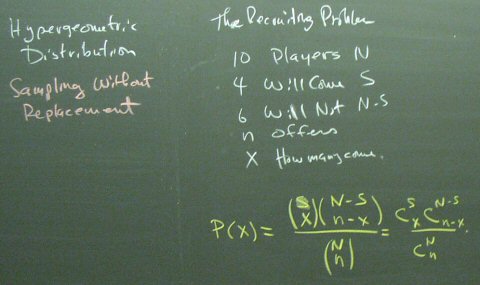 Hypergeometric
Distribution
Sampling Without
Replacement
The Recruiting Problem
10 Players N
4 Will Come S
6 Will Not N-S
n offers
X How many come.
P(X) = (S x)(N-S n-x) / (N n) = C^S_x C^{N-S}_{n-x} / C^N_n